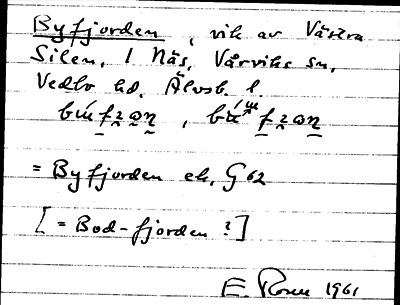 Byfjorden, vik av Västra
Silen, I Näs, Vårviks sn,
Vedbo hd. Älvsb. l.
= Byfjorden ek, G 62
[= Bod-fjorden?]
E. Rosen 1961